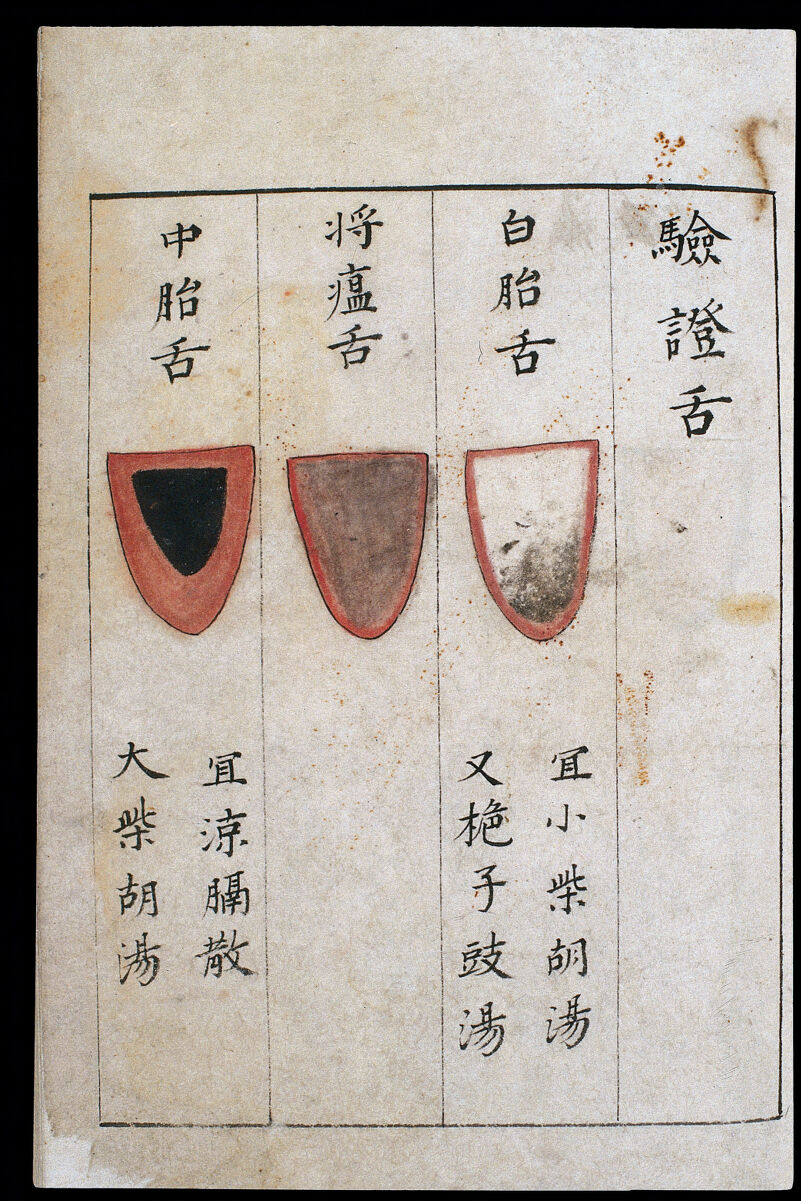 驗證舌
白胎舌
宜小柴胡湯
又梔子豉湯
将瘟舌
中胎舌
宜涼膈散
大柴胡湯